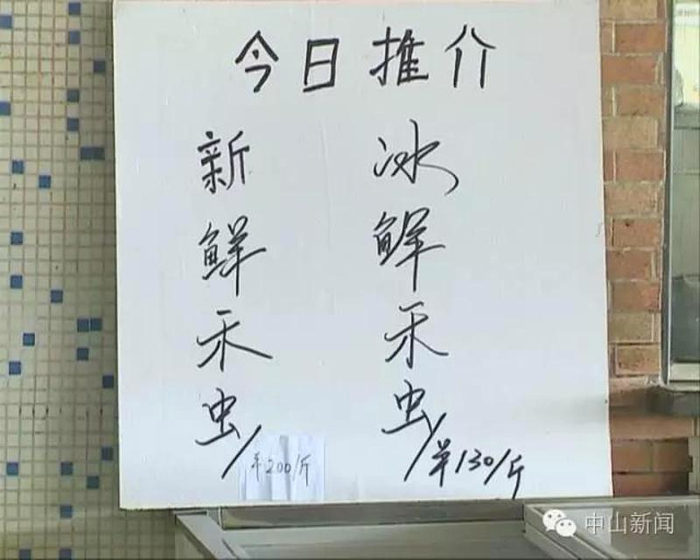 今日推介
新鲜禾虫/¥200/斤
冰鲜禾虫/¥130/斤
中山新闻